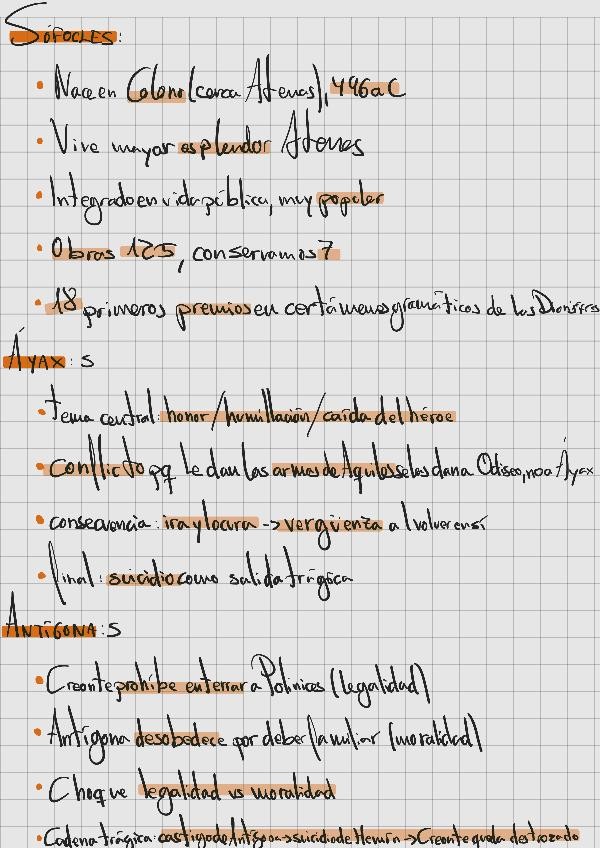 SÓFOCLES:
• Nace en Colono (cerca Atenas), 496 a C
• Vive mayor esplendor Atenas
• Integrado en vida pública, muy popular
• Obras 125, conservamos 7
• 18 primeros premios en certámenes gramáticos de las Dionisias
ÁYAX: S
• tema central: honor/humillación/caída del héroe
• conflicto pq le dan las armas de Aquiles se las dan a Odiseo, no a Áyax
• consecuencia: ira y locura -> vergüenza al volver en sí
• final: suicidio como salida trágica
ANTÍGONA: S
• Creonte prohíbe enterrar a Polinices (legalidad)
• Antígona desobedece por deber familiar (moralidad)
• Choque legalidad vs moralidad
• Cadena trágica: castigo de Antígona -> suicidio de Hemón -> Creonte queda destrozado